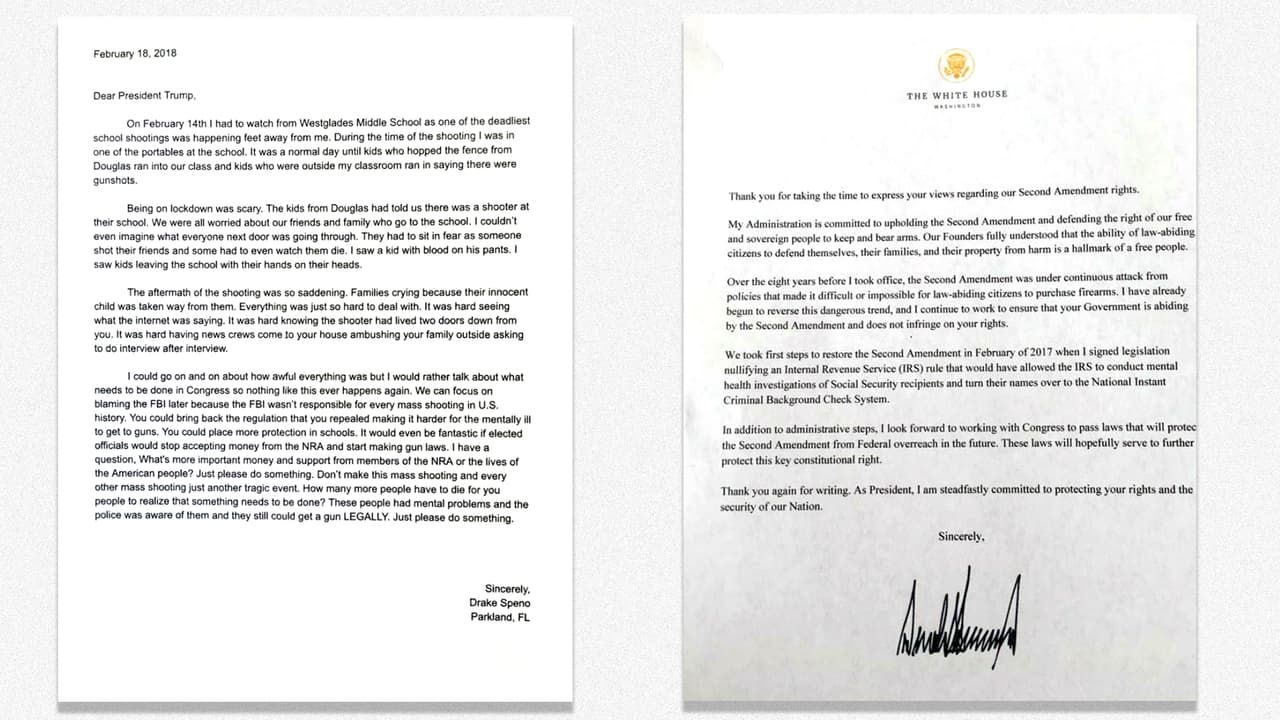 February 18, 2018
Dear President Trump,
On February 14th I had to watch from Westglades Middle School as one of the deadliest
school shootings was happening feet away from me. During the time of the shooting I was in
one of the portables at the school. It was a normal day until kids who hopped the fence from
Douglas ran into our class and kids who were outside my classroom ran in saying there were
gunshots.
Being on lockdown was scary. The kids from Douglas had told us there was a shooter at
their school. We were all worried about our friends and family who go to the school. I couldn't
even imagine what everyone next door was going through. They had to sit in fear as someone
shot their friends and some had to even watch them die. I saw a kid with blood on his pants. I
saw kids leaving the school with their hands on their heads.
The aftermath of the shooting was so saddening. Families crying because their innocent
child was taken way from them. Everything was just so hard to deal with. It was hard seeing
what the internet was saying. It was hard knowing the shooter had lived two doors down from
you. It was hard having news crews come to your house ambushing your family outside asking
to do interview after interview.
I could go on and on about how awful everything was but I would rather talk about what
needs to be done in Congress so nothing like this ever happens again. We can focus on
blaming the FBI later because the FBI wasn't responsible for every mass shooting in U.S.
history. You could bring back the regulation that you repealed making it harder for the mentally ill
to get to guns. You could place more protection in schools. It would even be fantastic if elected
officials would stop accepting money from the NRA and start making gun laws. I have a
question, What's more important money and support from members of the NRA or the lives of
the American people? Just please do something. Don't make this mass shooting and every
other mass shooting just another tragic event. How many more people have to die for you
people to realize that something needs to be done? These people had mental problems and the
police was aware of them and they still could get a gun LEGALLY. Just please do something.
Sincerely,
Drake Speno
Parkland, FL
THE WHITE HOUSE
WASHINGTON
Thank you for taking the time to express your views regarding our Second Amendment rights.
My Administration is committed to upholding the Second Amendment and defending the right of our free
and sovereign people to keep and bear arms. Our Founders fully understood that the ability of law-abiding
citizens to defend themselves, their families, and their property from harm is a hallmark of a free people.
Over the eight years before I took office, the Second Amendment was under continuous attack from
policies that made it difficult or impossible for law-abiding citizens to purchase firearms. I have already
begun to reverse this dangerous trend, and I continue to work to ensure that your Government is abiding
by the Second Amendment and does not infringe on your rights.
We took first steps to restore the Second Amendment in February of 2017 when I signed legislation
nullifying an Internal Revenue Service (IRS) rule that would have allowed the IRS to conduct mental
health investigations of Social Security recipients and turn their names over to the National Instant
Criminal Background Check System.
In addition to administrative steps, I look forward to working with Congress to pass laws that will protec
the Second Amendment from Federal overreach in the future. These laws will hopefully serve to further
protect this key constitutional right.
Thank you again for writing. As President, I am steadfastly committed to protecting your rights and the
security of our Nation.
Sincerely,